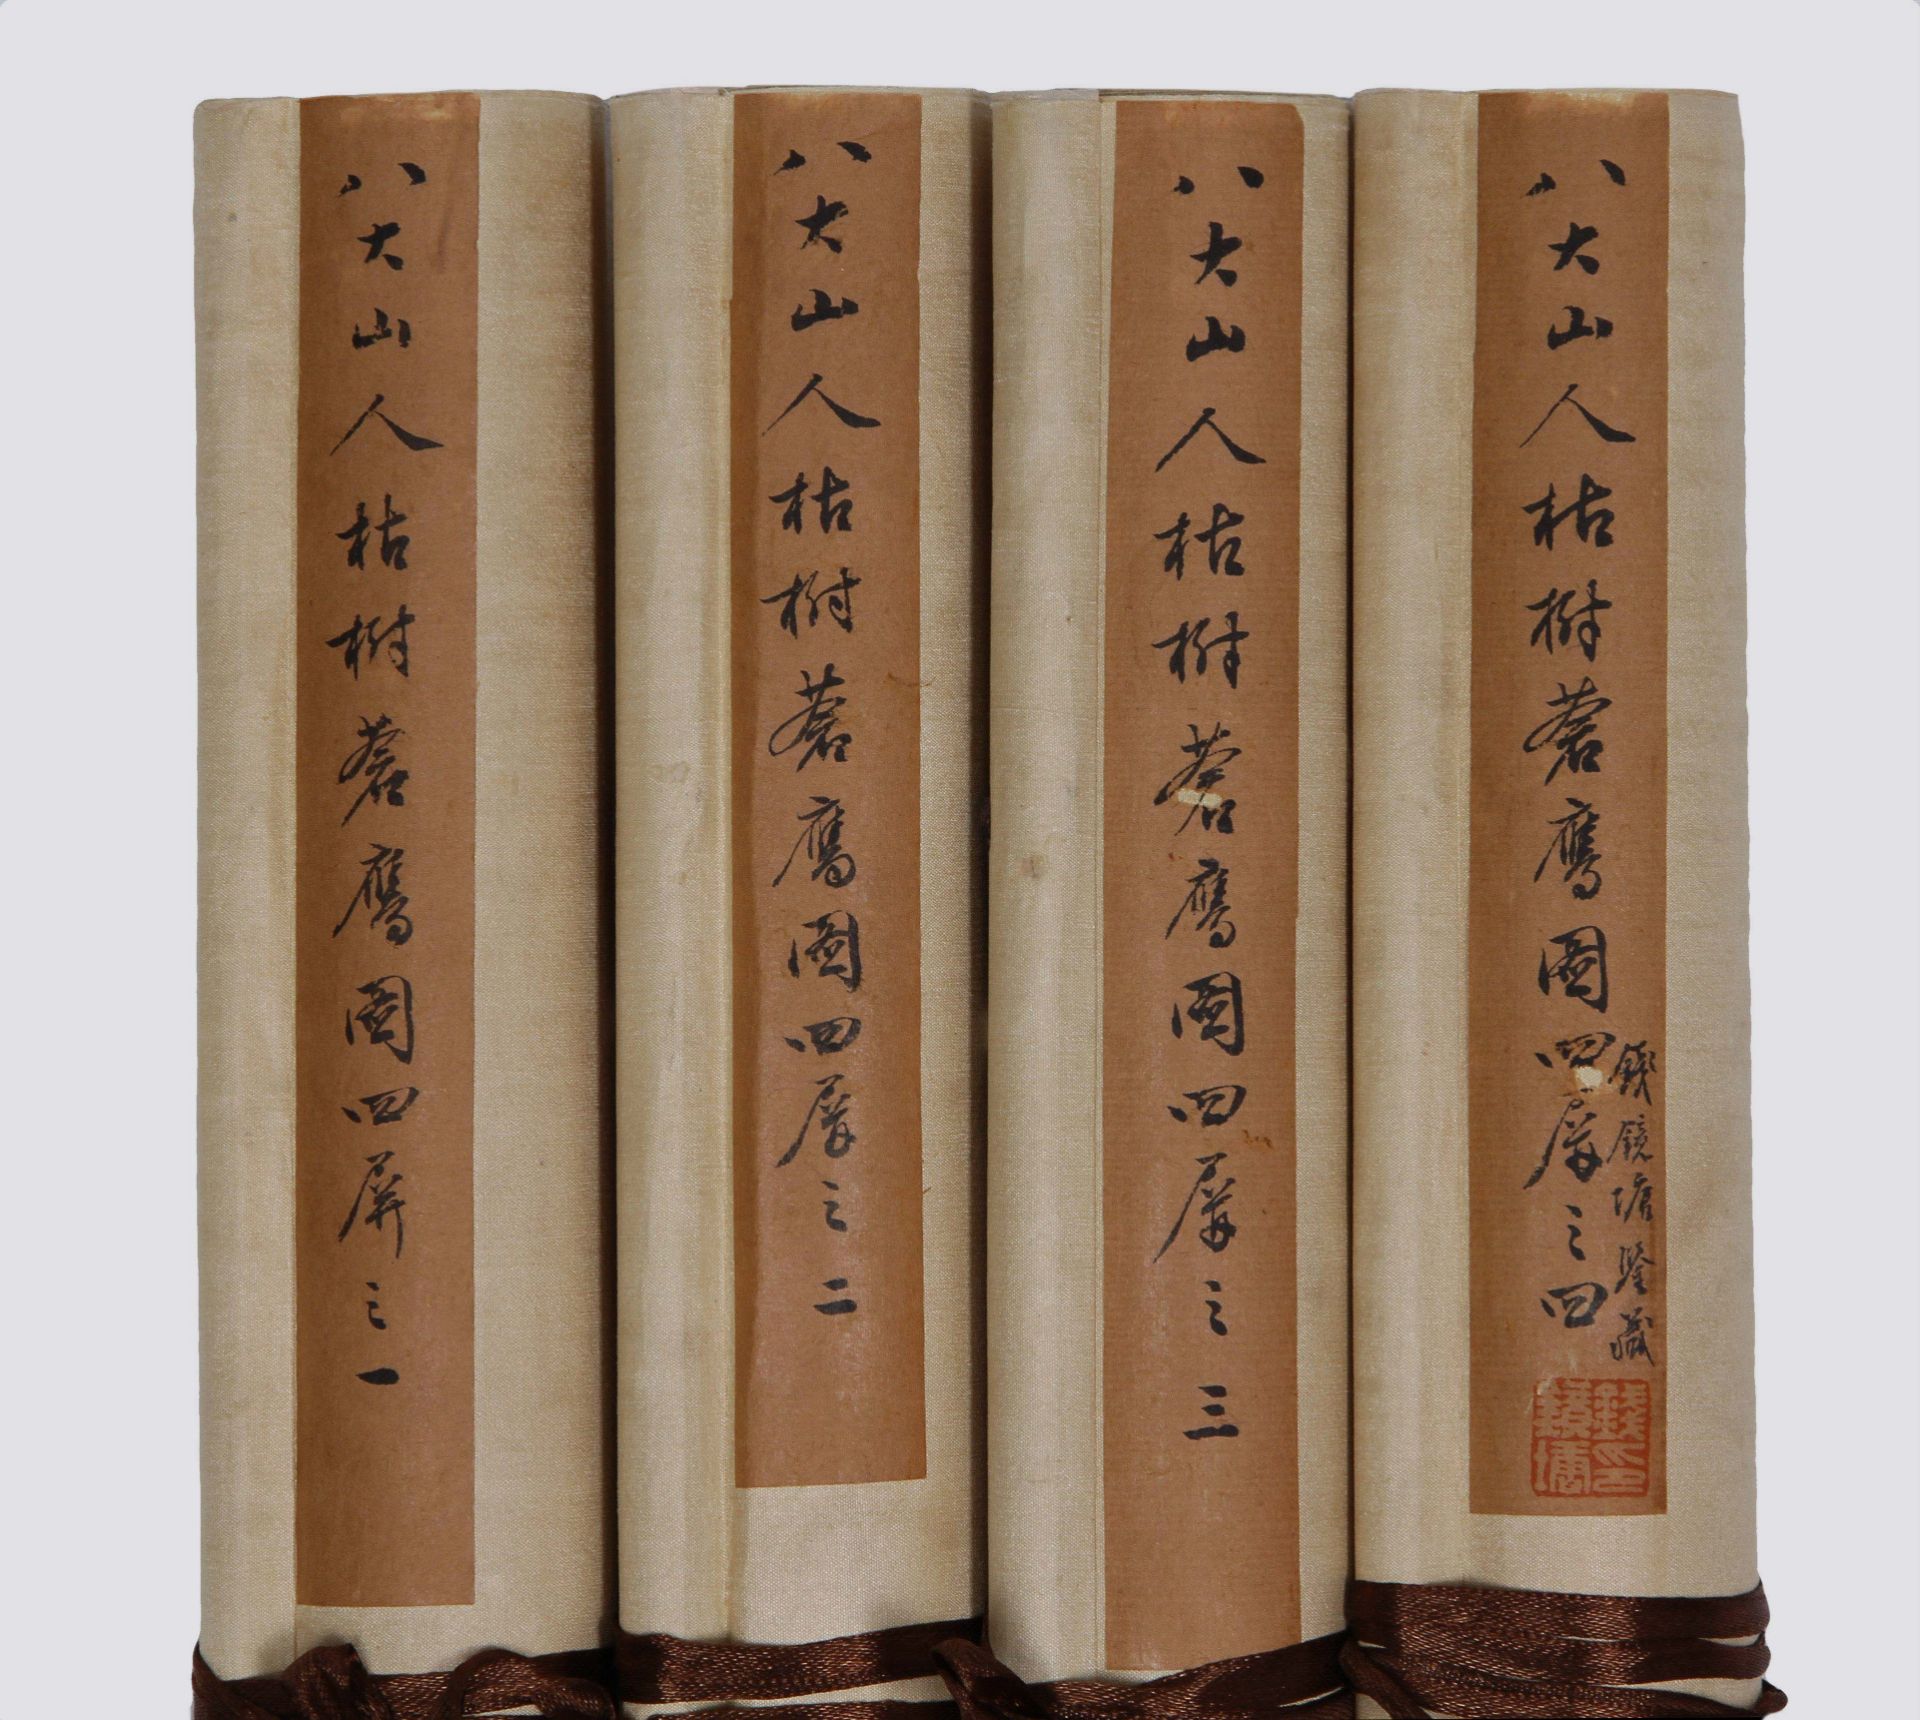 八大山人枯樹蒼鷹圖四屏之一
八大山人枯樹蒼鷹圖四屏之二
八大山人枯樹蒼鷹圖四屏之三
八大山人枯樹蒼鷹圖四屏之四
錢鏡塘鑒藏
錢印
鏡塘